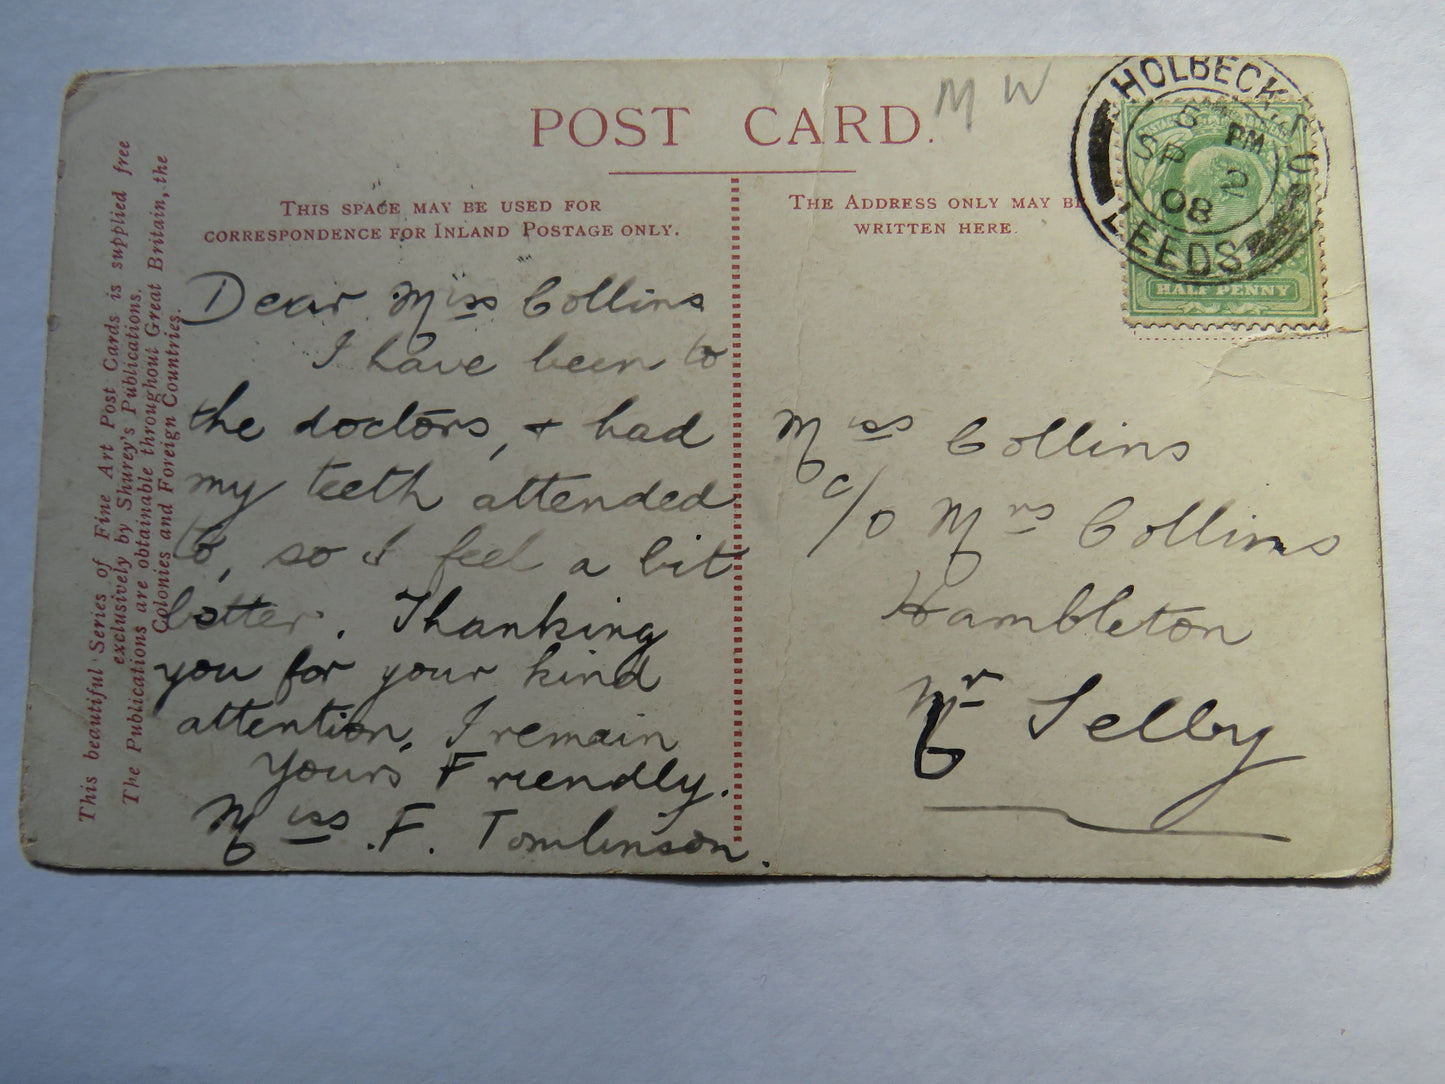 POST CARD.
M W
THIS SPACE MAY BE USED FOR
CORRESPONDENCE FOR INLAND POSTAGE ONLY.
THE ADDRESS ONLY MAY BE
WRITTEN HERE.
HOLBECK
8 PM
SP 2
08
LEEDS
HALF PENNY
This beautiful Series of Fine Art Post Cards is supplied free
exclusively by Shurey's Publications.
The Publications are obtainable throughout Great Britain, the
Colonies and Foreign Countries.
Dear Miss Collins
I have been to
the doctors, & had
my teeth attended
to, so I feel a bit
better. Thanking
you for your kind
attention, I remain
Yours Friendly.
Miss F. Tomlinson.
Miss Collins
c/o Mrs Collins
Hambleton
Nr Selby